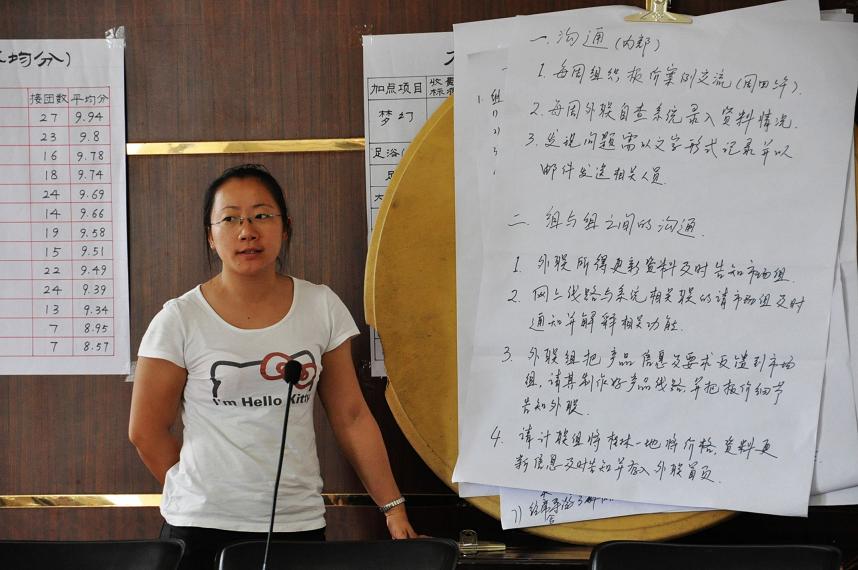 均分)
接团数 平均分
27 9.94
23 9.8
16 9.78
18 9.74
24 9.69
14 9.66
19 9.58
15 9.51
22 9.49
24 9.39
13 9.34
7 8.95
7 8.57
加点项目 收费标准
梦幻
足浴
I'm Hello Kitty
一. 沟通(内部)
1. 每周组织报价案例交流(周四下午).
2. 每周外联自查系统录入资料情况.
3. 发现问题需以文字形式记录并以
邮件发送相关人员.
二. 组与组之间的沟通.
1. 外联所得更新资料及时告知市场组.
2. 网上线路与系统相关联的请市场组及时
通知并解释相关功能.
3. 外联组把产品信息及要求反馈到市场
组, 请其制作好产品线路并把报价细节
告知外联.
4. 请计联组将桂林一地将价格,资料更
新信息及时告知并存入外联首页.